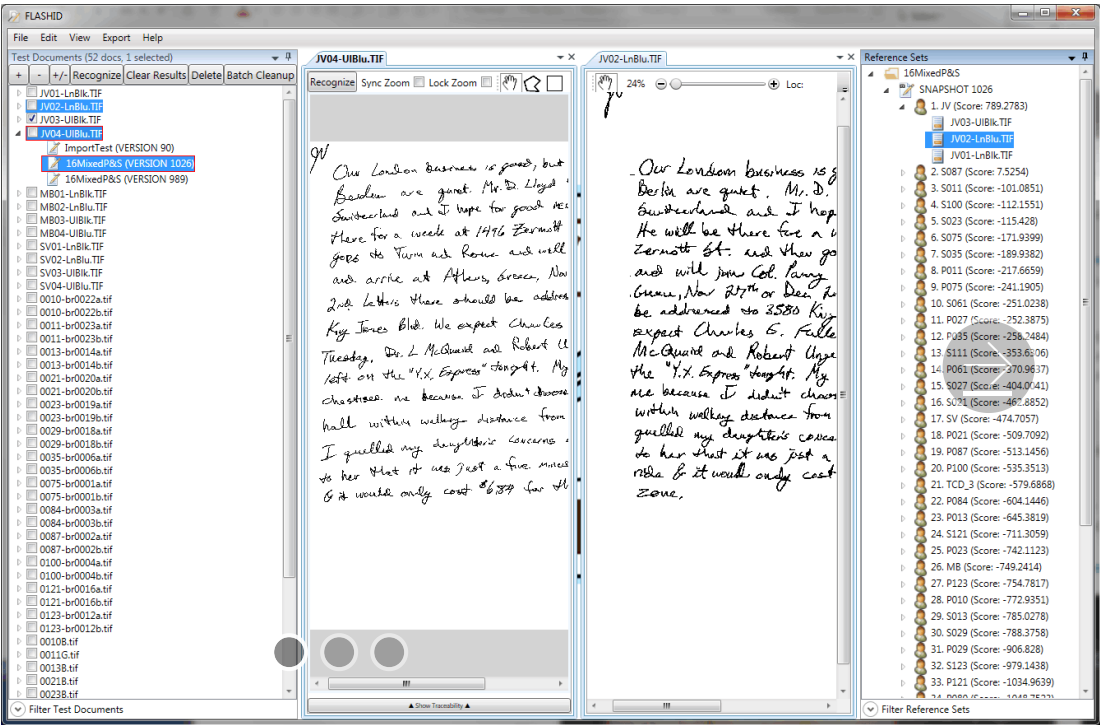 FLASHID
File Edit View Export Help
Test Documents (52 docs, 1 selected)
+ - +/- Recognize Clear Results Delete Batch Cleanup
JV01-LnBlk.TIF
JV02-LnBlu.TIF
JV03-UlBlk.TIF
JV04-UlBlu.TIF
ImportTest (VERSION 90)
16MixedP&S (VERSION 1026)
16MixedP&S (VERSION 989)
MB01-LnBlk.TIF
MB02-LnBlu.TIF
MB03-UlBlk.TIF
MB04-UlBlu.TIF
SV01-LnBlk.TIF
SV02-LnBlu.TIF
SV03-UlBlk.TIF
SV04-UlBlu.TIF
0010-br0022a.tif
0010-br0022b.tif
0011-br0023a.tif
0011-br0023b.tif
0013-br0014a.tif
0013-br0014b.tif
0021-br0020a.tif
0021-br0020b.tif
0023-br0019a.tif
0023-br0019b.tif
0029-br0018a.tif
0029-br0018b.tif
0035-br0006a.tif
0035-br0006b.tif
0075-br0001a.tif
0075-br0001b.tif
0084-br0003a.tif
0084-br0003b.tif
0087-br0002a.tif
0087-br0002b.tif
0100-br0004a.tif
0100-br0004b.tif
0121-br0016a.tif
0121-br0016b.tif
0123-br0012a.tif
0123-br0012b.tif
0010B.tif
0011G.tif
0013B.tif
0021B.tif
0023B.tif
Filter Test Documents
JV04-UlBlu.TIF
Recognize Sync Zoom Lock Zoom
JV
Our London business is good, but
are quiet. Mr. D. Lloyd
Switzerland and I hope for good
there for a week at 1496 Zermott
goes to Turin and Rome and will
and arrive at Athens, Greece, Nov
2nd. Letters there should be address
King James Blvd. We expect Charles
Tuesday, Dr. L McQuaid and Robert U
left on the "Y.X. Express" tonight. My
chastises me because I didn't choose
hall within walking distance from
I quelled my daughter's concerns
to her that it was just a five minute
& it would only cost $6.84 for th
Show Traceability
JV02-LnBlu.TIF
24% Loc:
JV
Our London business is g
Berlin are quiet. Mr. D.
Switzerland and I hop
He will be there for a w
Zermott St. and then go
and will join Col. Parry
Greece, Nov 27th or Dec. 2
be addressed to 3580 King
expect Charles E. Fulle
McQuaid and Robert Unge
the "Y.X. Express" tonight. My
me because I didn't choos
within walking distance from
quelled my daughter's conce
to her that it was just a
ride & it would only cost
zone.
Reference Sets
16MixedP&S
SNAPSHOT 1026
1. JV (Score: 789.2783)
JV03-UlBlk.TIF
JV02-LnBlu.TIF
JV01-LnBlk.TIF
2. S087 (Score: 7.5254)
3. S011 (Score: -101.0851)
4. S100 (Score: -112.1551)
5. S023 (Score: -115.428)
6. S075 (Score: -171.9399)
7. S035 (Score: -189.9382)
8. P011 (Score: -217.6659)
9. P075 (Score: -241.1905)
10. S061 (Score: -251.0238)
11. P027 (Score: -252.3875)
12. P035 (Score: -258.2484)
13. S111 (Score: -353.6306)
14. P061 (Score: -370.9637)
15. S027 (Score: -404.0041)
16. S021 (Score: -462.8852)
17. SV (Score: -474.7057)
18. P021 (Score: -509.7092)
19. P087 (Score: -513.1456)
20. P100 (Score: -535.3513)
21. TCD_3 (Score: -579.6868)
22. P084 (Score: -604.1446)
23. P013 (Score: -645.3819)
24. S121 (Score: -711.3059)
25. P023 (Score: -742.1123)
26. MB (Score: -749.2414)
27. P123 (Score: -754.7817)
28. P010 (Score: -772.9351)
29. S013 (Score: -785.0278)
30. S029 (Score: -788.3758)
31. P029 (Score: -906.828)
32. S123 (Score: -979.1438)
33. P121 (Score: -1034.9639)
Filter Reference Sets